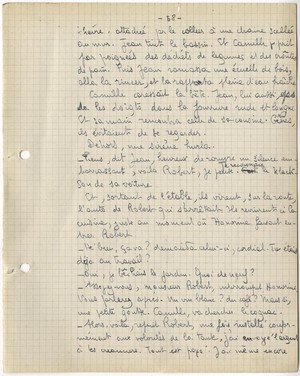 - 58 -
chèvre, attachée par le collier à une chaîne scellée
au mur. Jean tint le bassin. Et Camille y prit
par poignées des déchets de légumes et des croûtes
de pain. Puis Jean ramassa une écuelle de bois,
alla la rincer, et la rapporta pleine d'eau fraîche.
Camille caressait la bête. Jean, lui aussi,
les doigts dans la fourrure rude et longue.
Et sa main rencontra celle de sa cousine. Gênés,
ils évitaient de se regarder.
Dehors, une sirène hurla.
- Tiens, dit Jean, heureux de rompre un silence em-
barrassant, voilà Robert, je reconnais le klack-
son de sa voiture.
Et, sortant de l'étable, ils virent, sur la route,
l'auto de Robert qui s'arrêtait. Ils revinrent à la
cuisine, juste au moment où Honorine faisait en-
trer Robert.
- Eh bien, ça va? demanda celui-ci, cordial. Tu étais
déjà au travail?
- Oui, je bêchais le jardin. Quoi de neuf?
- Assoyez-vous, monsieur Robert, interrompit Honorine.
Vous parlerez après. Un vin blanc? du café? Mais si,
une petite goutte. Camille, va chercher le cognac.
- Alors, voilà, reprit Robert, une fois installé confor-
mément aux volontés de la tante, j'ai envoyé l'argent
à tes messieurs. Tout est payé. J'ai même encore